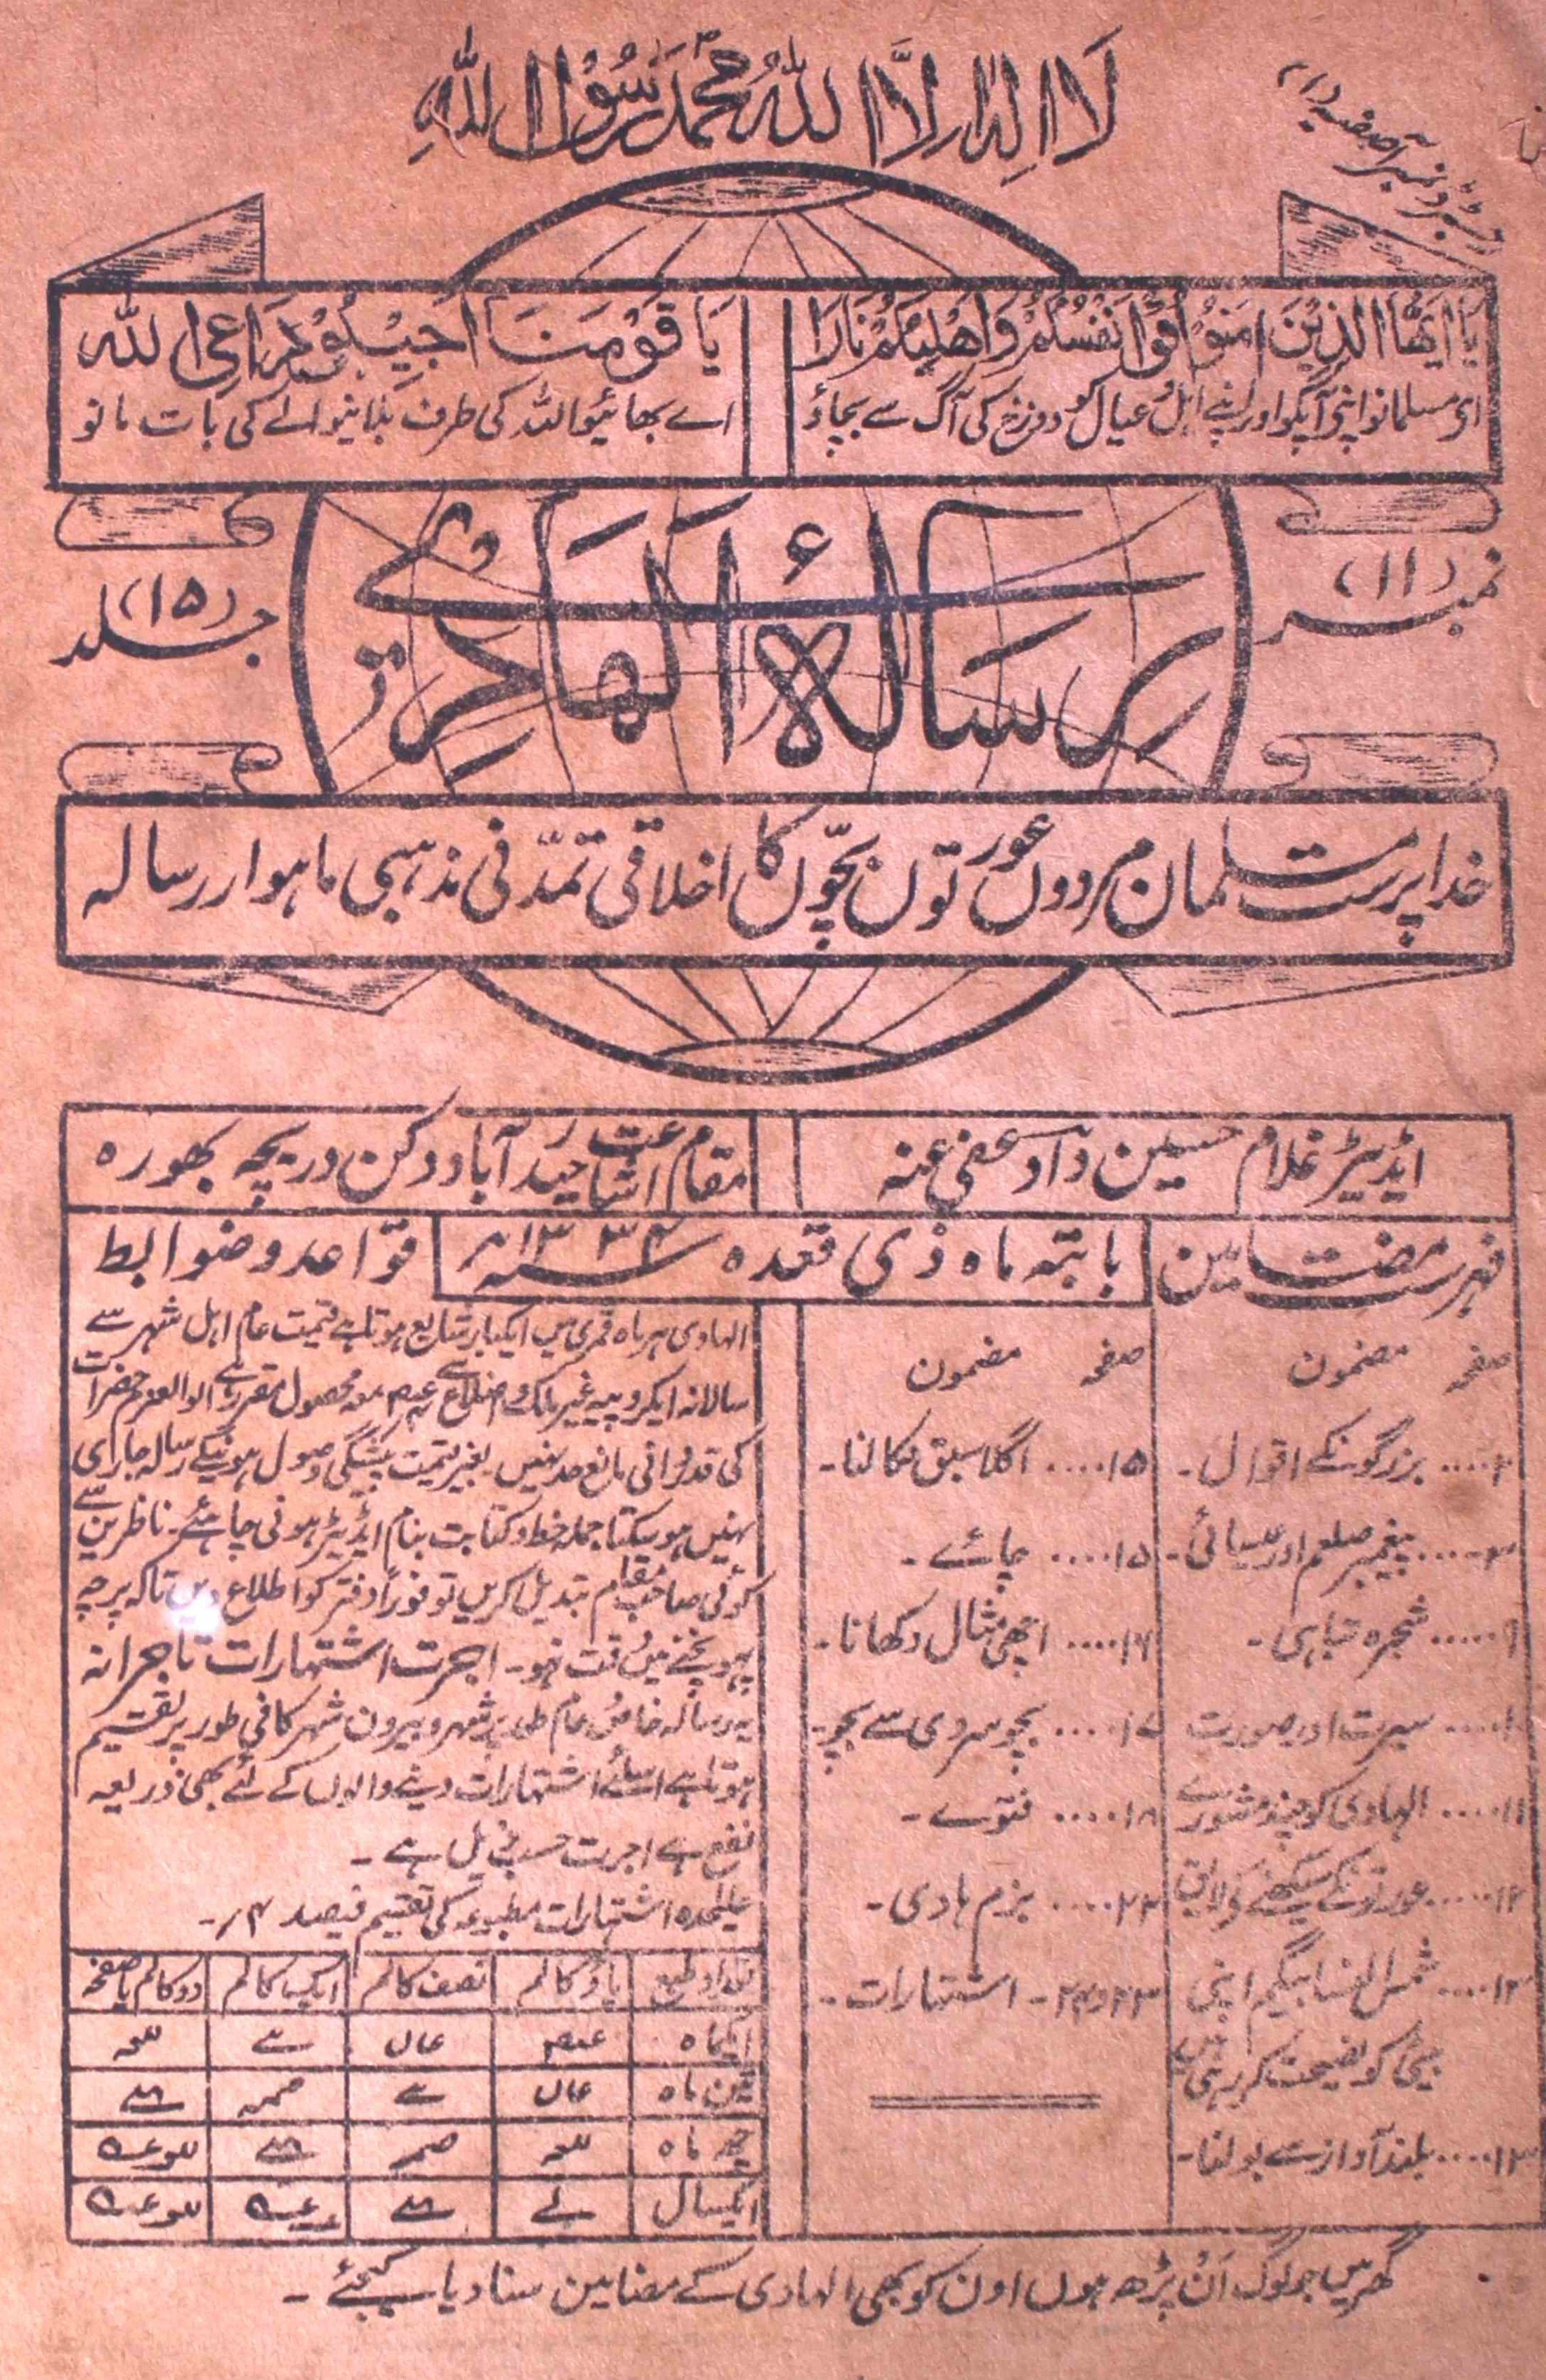 لَا اِلٰہَ اِلَّا اللّٰہُ مُحَمَّدٌ رَّسُوْلُ اللّٰہِ
يَا اَيُّهَا الَّذِيْنَ اٰمَنُوْا قُوْا اَنْفُسَكُمْ وَاَهْلِيْكُمْ نَارًا
ای مسلمانو اپنی آپکو اور اپنے اہل و عیال کو دوزخ کی آگ سے بچاؤ
يَا قَوْمَنَا اَجِيْبُوْا دَاعِيَ اللّٰہ
اے بھائیو اللہ کی طرف بلانیوالے کی بات مانو
نمبر (۱۱)
رسالۂ الہادی
جلد (۱۵)
خدا پرست مسلمان مردوں عورتوں بچّوں کا اخلاقی تمدّنی مذہبی ماہوار رسالہ
ایڈیٹر غلام حسین داؤد عفی عنہ
مقام اشاعت حیدرآباد دکن دریچہ بھورہ
فہرست مضامین
بابتہ ماہ ذی قعدہ ۱۳۳۴
قواعد و ضوابط
صفحہ مضمون
۲.... بزرگونکے اقوال۔
۳.... پیغمبر صلعم اور عیسائی۔
۹.... شجرہ تباہی۔
۱۰.... سیرت اور صورت
۱۱.... الہادی کو چند مشورے
۱۲.... عورتونکے سیکھنے کے لایق
۱۲.... شمس النسا بیگم اپنی
بیٹی کو نصیحت کر رہی ہیں
۱۳.... بلند آواز سے بولنا۔
صفحہ مضمون
۱۵.... اگلا سبق نکالنا۔
۱۵.... چائے۔
۱۶.... اچھی مثال دکھانا۔
۱۷.... بچو سردی سے بچو۔
۱۸.... فتوے۔
۲۲.... بزم ہادی۔
۲۳ و ۲۴۔ اشتہارات۔
الہادی ہر ماہ قمری میں ایکبار شایع ہوتا ہے قیمت عام اہل شہر سے
سالانہ ایکروپیہ غیر ممالک و اضلاع سے معہ محصول مقرر ہے اولوالعزم حضرات
کی قدردانی مانع حد نہیں۔ بغیر قیمت پیشگی وصول ہونیکے رسالہ جاری
نہیں ہو سکتا جملہ خط و کتابت بنام ایڈیٹر ہونی چاہئے۔ ناظرین سے
کوئی صاحب مقام تبدیل کریں تو فوراً دفتر کو اطلاع دیں تاکہ پرچہ
پہونچنے میں دقت نہو۔ اجرت اشتہارات تاجرانہ
یہ رسالہ خاص و عام طور پر شہر و بیرون شہر کافی طور پر تقسیم
ہوتا ہے اسلئے اشتہارات دینے والوں کے لئے بھی ذریعہ
نفع ہے اجرت حسب ذیل ہے۔
علیحدہ اشتہارات مطبوعہ کی تقسیم فیصد ۴/۔
تعداد طبع پاؤ کالم نصف کالم ایک کالم دو کالم یا صفحہ
ایکماہ
تین ماہ
چھ ماہ
ایکسال
گھر میں جو لوگ اَن پڑھ ہوں اون کو بھی الہادی کے مضامین سنا دیا کیجئے۔